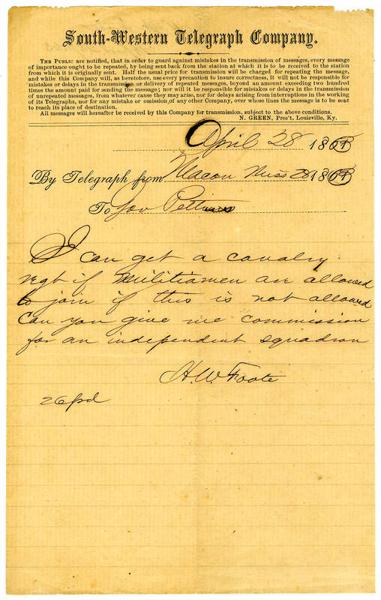 South-Western Telegraph Company.
THE PUBLIC are notified, that in order to guard against mistakes in the transmission of messages, every message
of importance ought to be repeated, by being sent back from the station at which it is to be received to the station
from which it is originally sent. Half the usual price for transmission will be charged for repeating the message,
and while this Company will, as heretofore, use every precaution to insure correctness, it will not be responsible for
mistakes or delays in the transmission or delivery of repeated messages, beyond an amount exceeding two hundred
times the amount paid for sending the message; nor will it be responsible for mistakes or delays in the transmission
of unrepeated messages, from whatever cause they may arise, nor for delays arising from interruptions in the working
of its Telegraphs, nor for any mistake or omission of any other Company, over whose lines the message is to be sent
to reach its place of destination.
All messages will hereafter be received by this Company for transmission, subject to the above conditions.
N. GREEN, Pres't, Louisville, Ky.
April 28 1863
By Telegraph from Macon Miss 28 1863
To Gov Pettus
I can get a cavalry
regt if militiamen are allowed
to join if this is not allowed
can you give me commission
for an independent squadron
H. W. Foote
26 pd